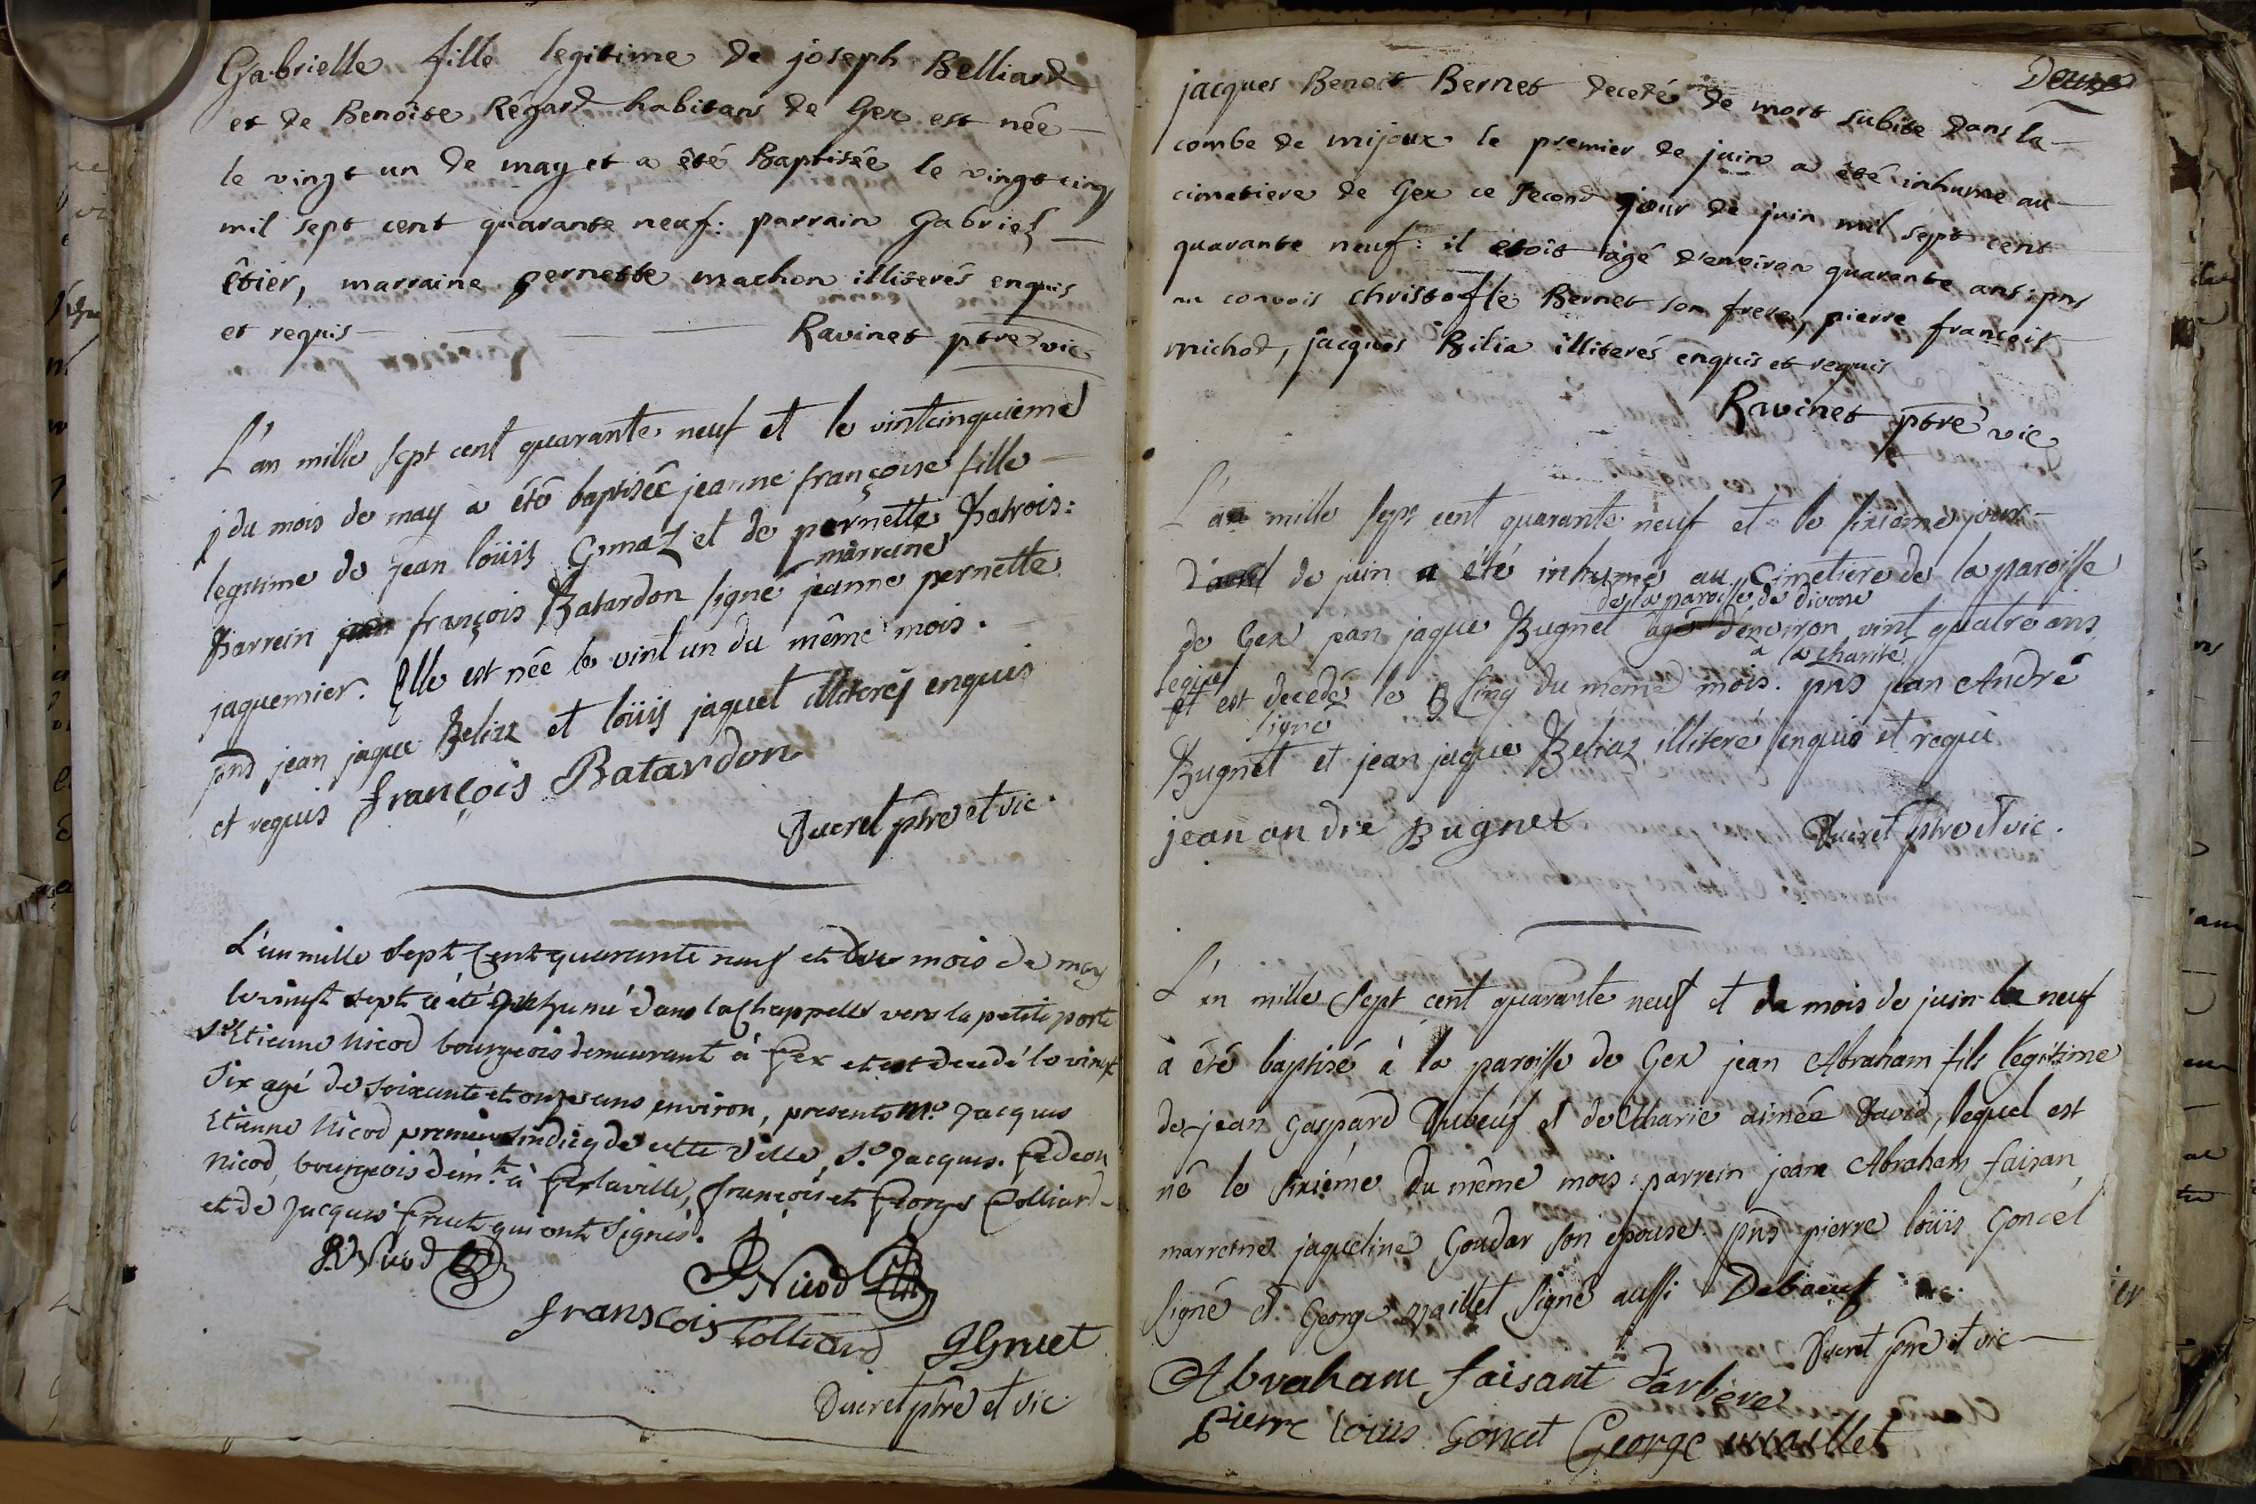 Gabrielle fille legitime de joseph Belliard
et de Benoîte Régard habitans de Gex est née
le vingt un de may et a êté Baptisée le vingt cinq
mil sept cent quarante neuf: parrain Gabriel
êtier, marraine pernette machon illiterés enquis
et requis
Ravinet ptre vic
L'an mille sept cent quarante neuf et le vintcinquieme
j du mois de may a été baptisée jeanne françoise fille
legitime de jean loüis Gmaz et de pernette Patrois:
marreine
Parrein françois Batardon signé jeanne pernette
jaquemier. Elle est née le vint un du même mois.
pns jean jaque Beliaz et loüis jaquet illiterés enquis
et requis françois Batardon
Ducret ptre et vic.
L'an mille sept Cent quarante neuf et du mois de may
le vingt sept a été Inhumé dans la Chappelle vers la petite porte
Sr Etienne Nicod bourgeois demeurant à Gex et est decedé le vingt
six agé de soixante et onze ans environ, presents Mre Jacques
Etienne Nicod premier sindicq de cette Ville, Sr Jacques. Gedeon
Nicod, bourgeois demt. à Gex la ville, françois et George Colliard
et de Jacques Gruet qui ont signés.
Nicod
Nicod
franscois Colliard
Gruet
Ducret ptre et vic
Deux
jacques Benoit Bernet decedé de mort subite dans la
combe de mijoux le premier de juin a êté inhumé au
cimetiere de Gex ce second jour de juin mil sept cent
quarante neuf: il etoit agé d'environ quarante ans: pns
au convois christofle Bernet son frere, pierre françois
michod, jacques Bilia illiterés enquis et requis
Ravinet ptre vic
L'an mille sept cent quarante neuf et le sixieme jour
de juin a été inhumé au Cimetiere de la paroisse
de la paroisse de divone
de Gex jean jaque Bugnet agé d'environ vint quatre ans
a la charité
lequel
et est decedé le cinq du même mois. pns jean André
signé
Bugnet et jean jaque Beliaz illiteré enquis et requi
jean andre Bugnet
Ducret ptre et vic.
L'an mille sept cent quarante neuf et du mois de juin le neuf
a été baptisé à la paroisse de Gex jean Abraham fils legitime
de jean Gaspard Dubeuf et de Marie aimée David, lequel est
né le sixiéme du même mois: parrein jean Abraham faisan,
marreine jaqueline Goudar son epouse. pns pierre loüis Goncet
signé et George Maillet signé aussi Debaeuf
Ducret ptre et vic
Abraham faisant Darbere
Pierre louis Goncet George Maillet